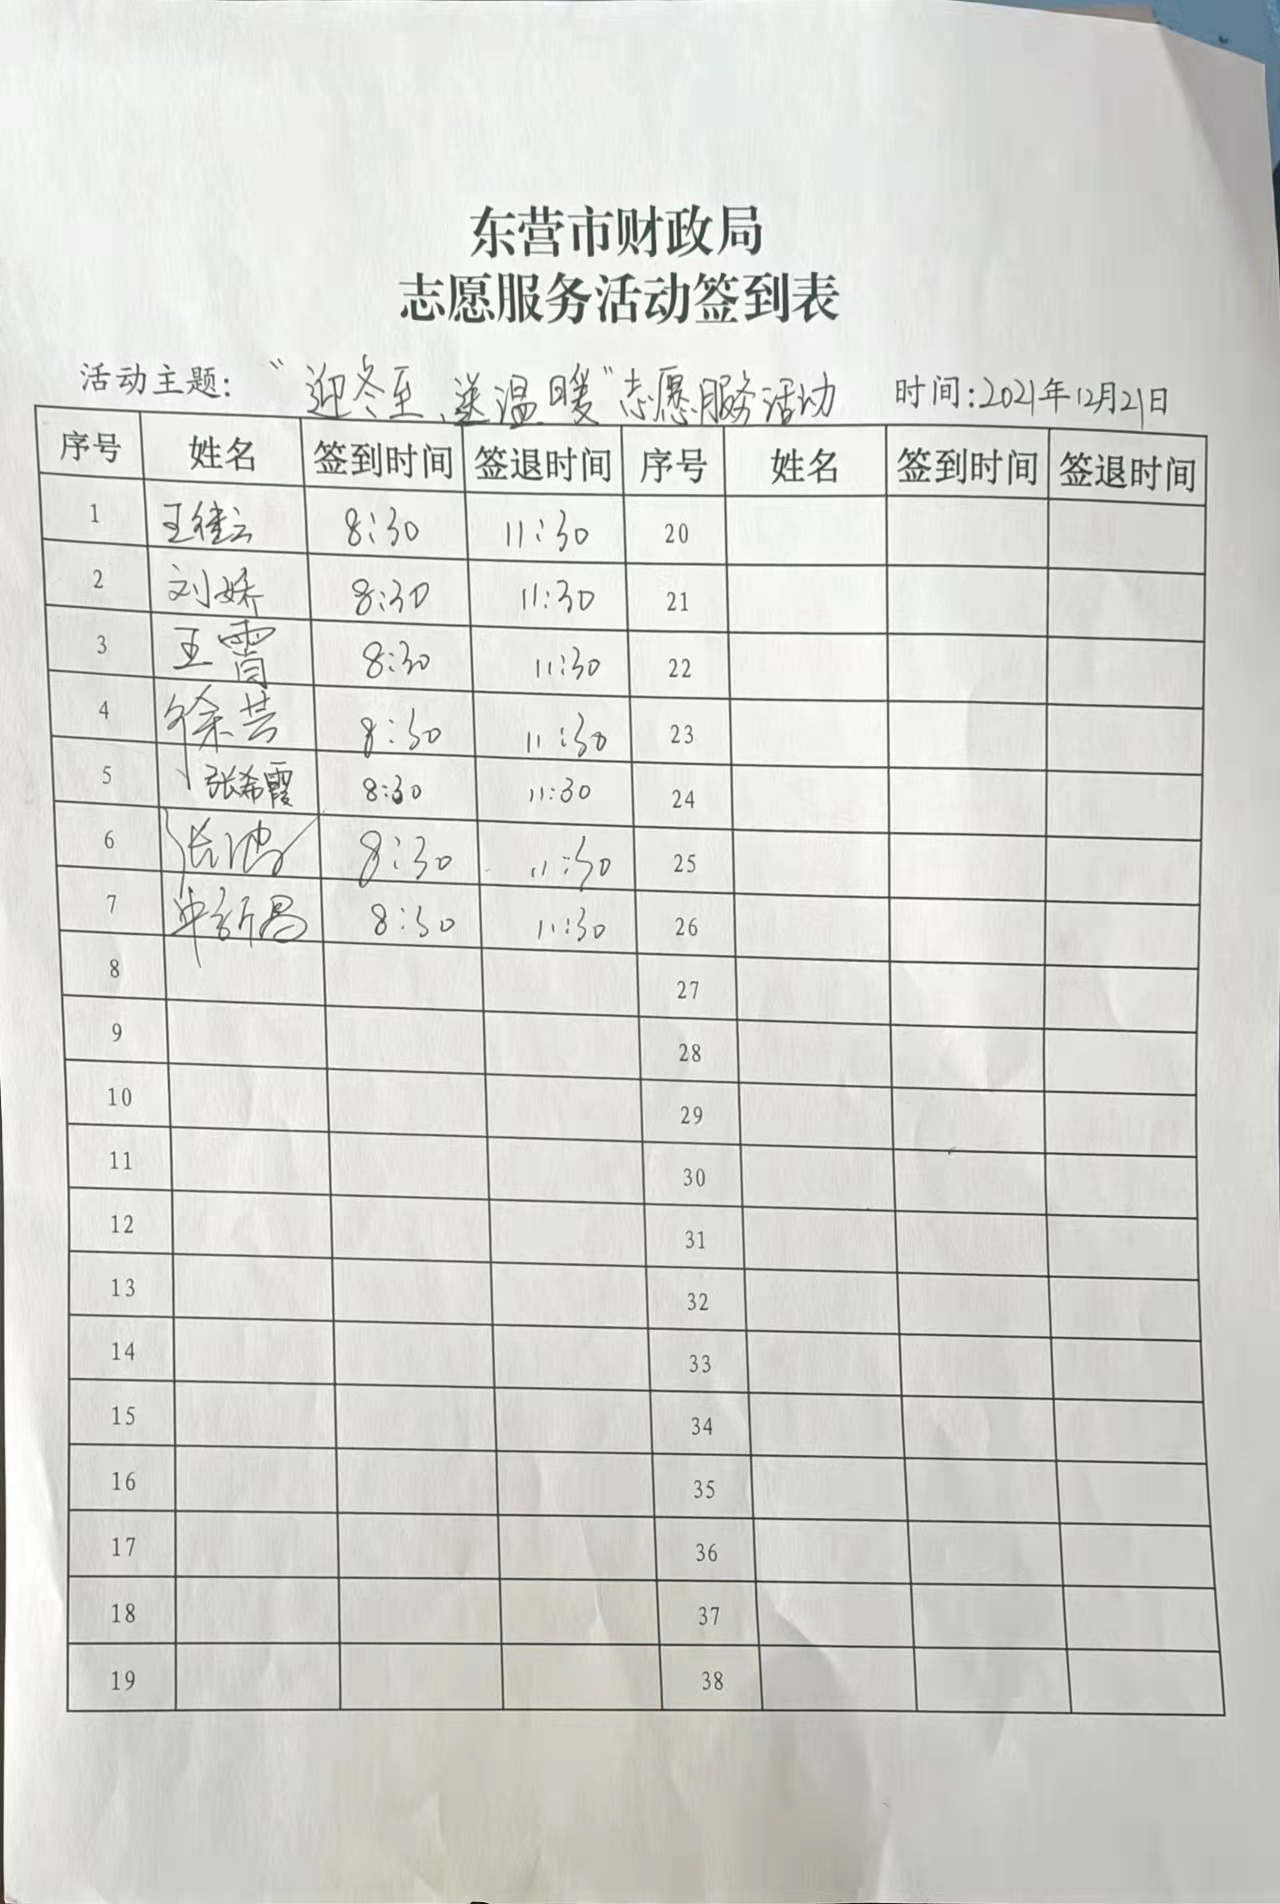 东营市财政局
志愿服务活动签到表
活动主题："迎冬至、送温暖"志愿服务活动 时间：2021年12月21日
序号 姓名 签到时间 签退时间 序号 姓名 签到时间 签退时间
1 王继云 8:30 11:30 20
2 刘娇 8:30 11:30 21
3 王霄 8:30 11:30 22
4 徐芸 8:30 11:30 23
5 张希霞 8:30 11:30 24
6 8:30 11:30 25
7 8:30 11:30 26
8 27
9 28
10 29
11 30
12 31
13 32
14 33
15 34
16 35
17 36
18 37
19 38